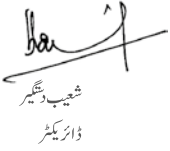 شعیب دستگیر
ڈائریکٹر